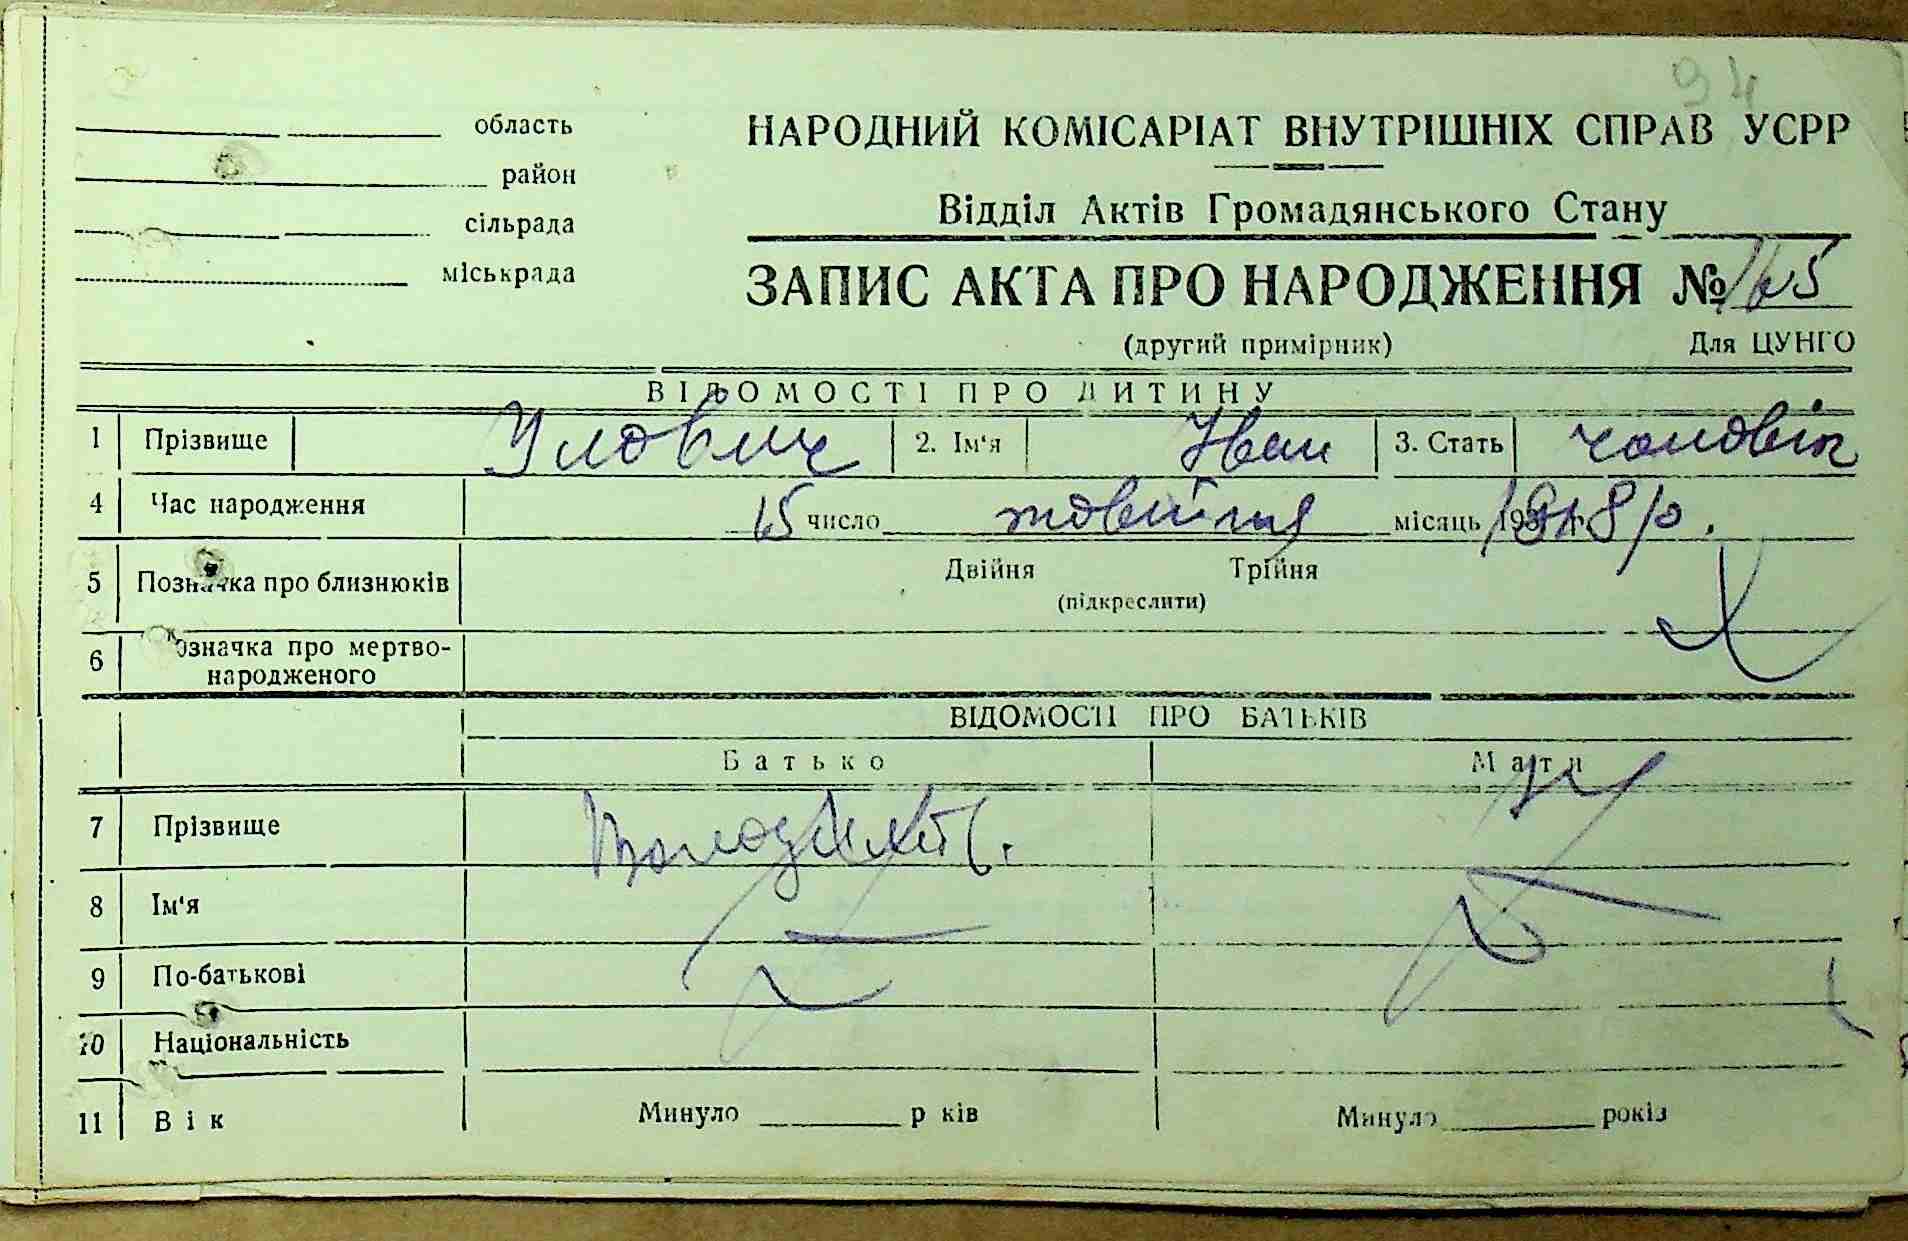 94
область
район
сільрада
міськрада
НАРОДНИЙ КОМІСАРІАТ ВНУТРІШНІХ СПРАВ УСРР
Відділ Актів Громадянського Стану
ЗАПИС АКТА ПРО НАРОДЖЕННЯ № 165
(другий примірник) Для ЦУНГО
ВІДОМОСТІ ПРО ДИТИНУ
1 Прізвище 2. Ім'я Иван 3. Стать чоловік
4 Час народження 15 число жовтня місяць
5 Позначка про близнюків Двійня Трійня
(підкреслити)
6 Позначка про мертво-
народженого
ВІДОМОСТІ ПРО БАТЬКІВ
Батько Мати
7 Прізвище
8 Ім'я
9 По-батькові
10 Національність
11 Вік Минуло р ків Минуло років